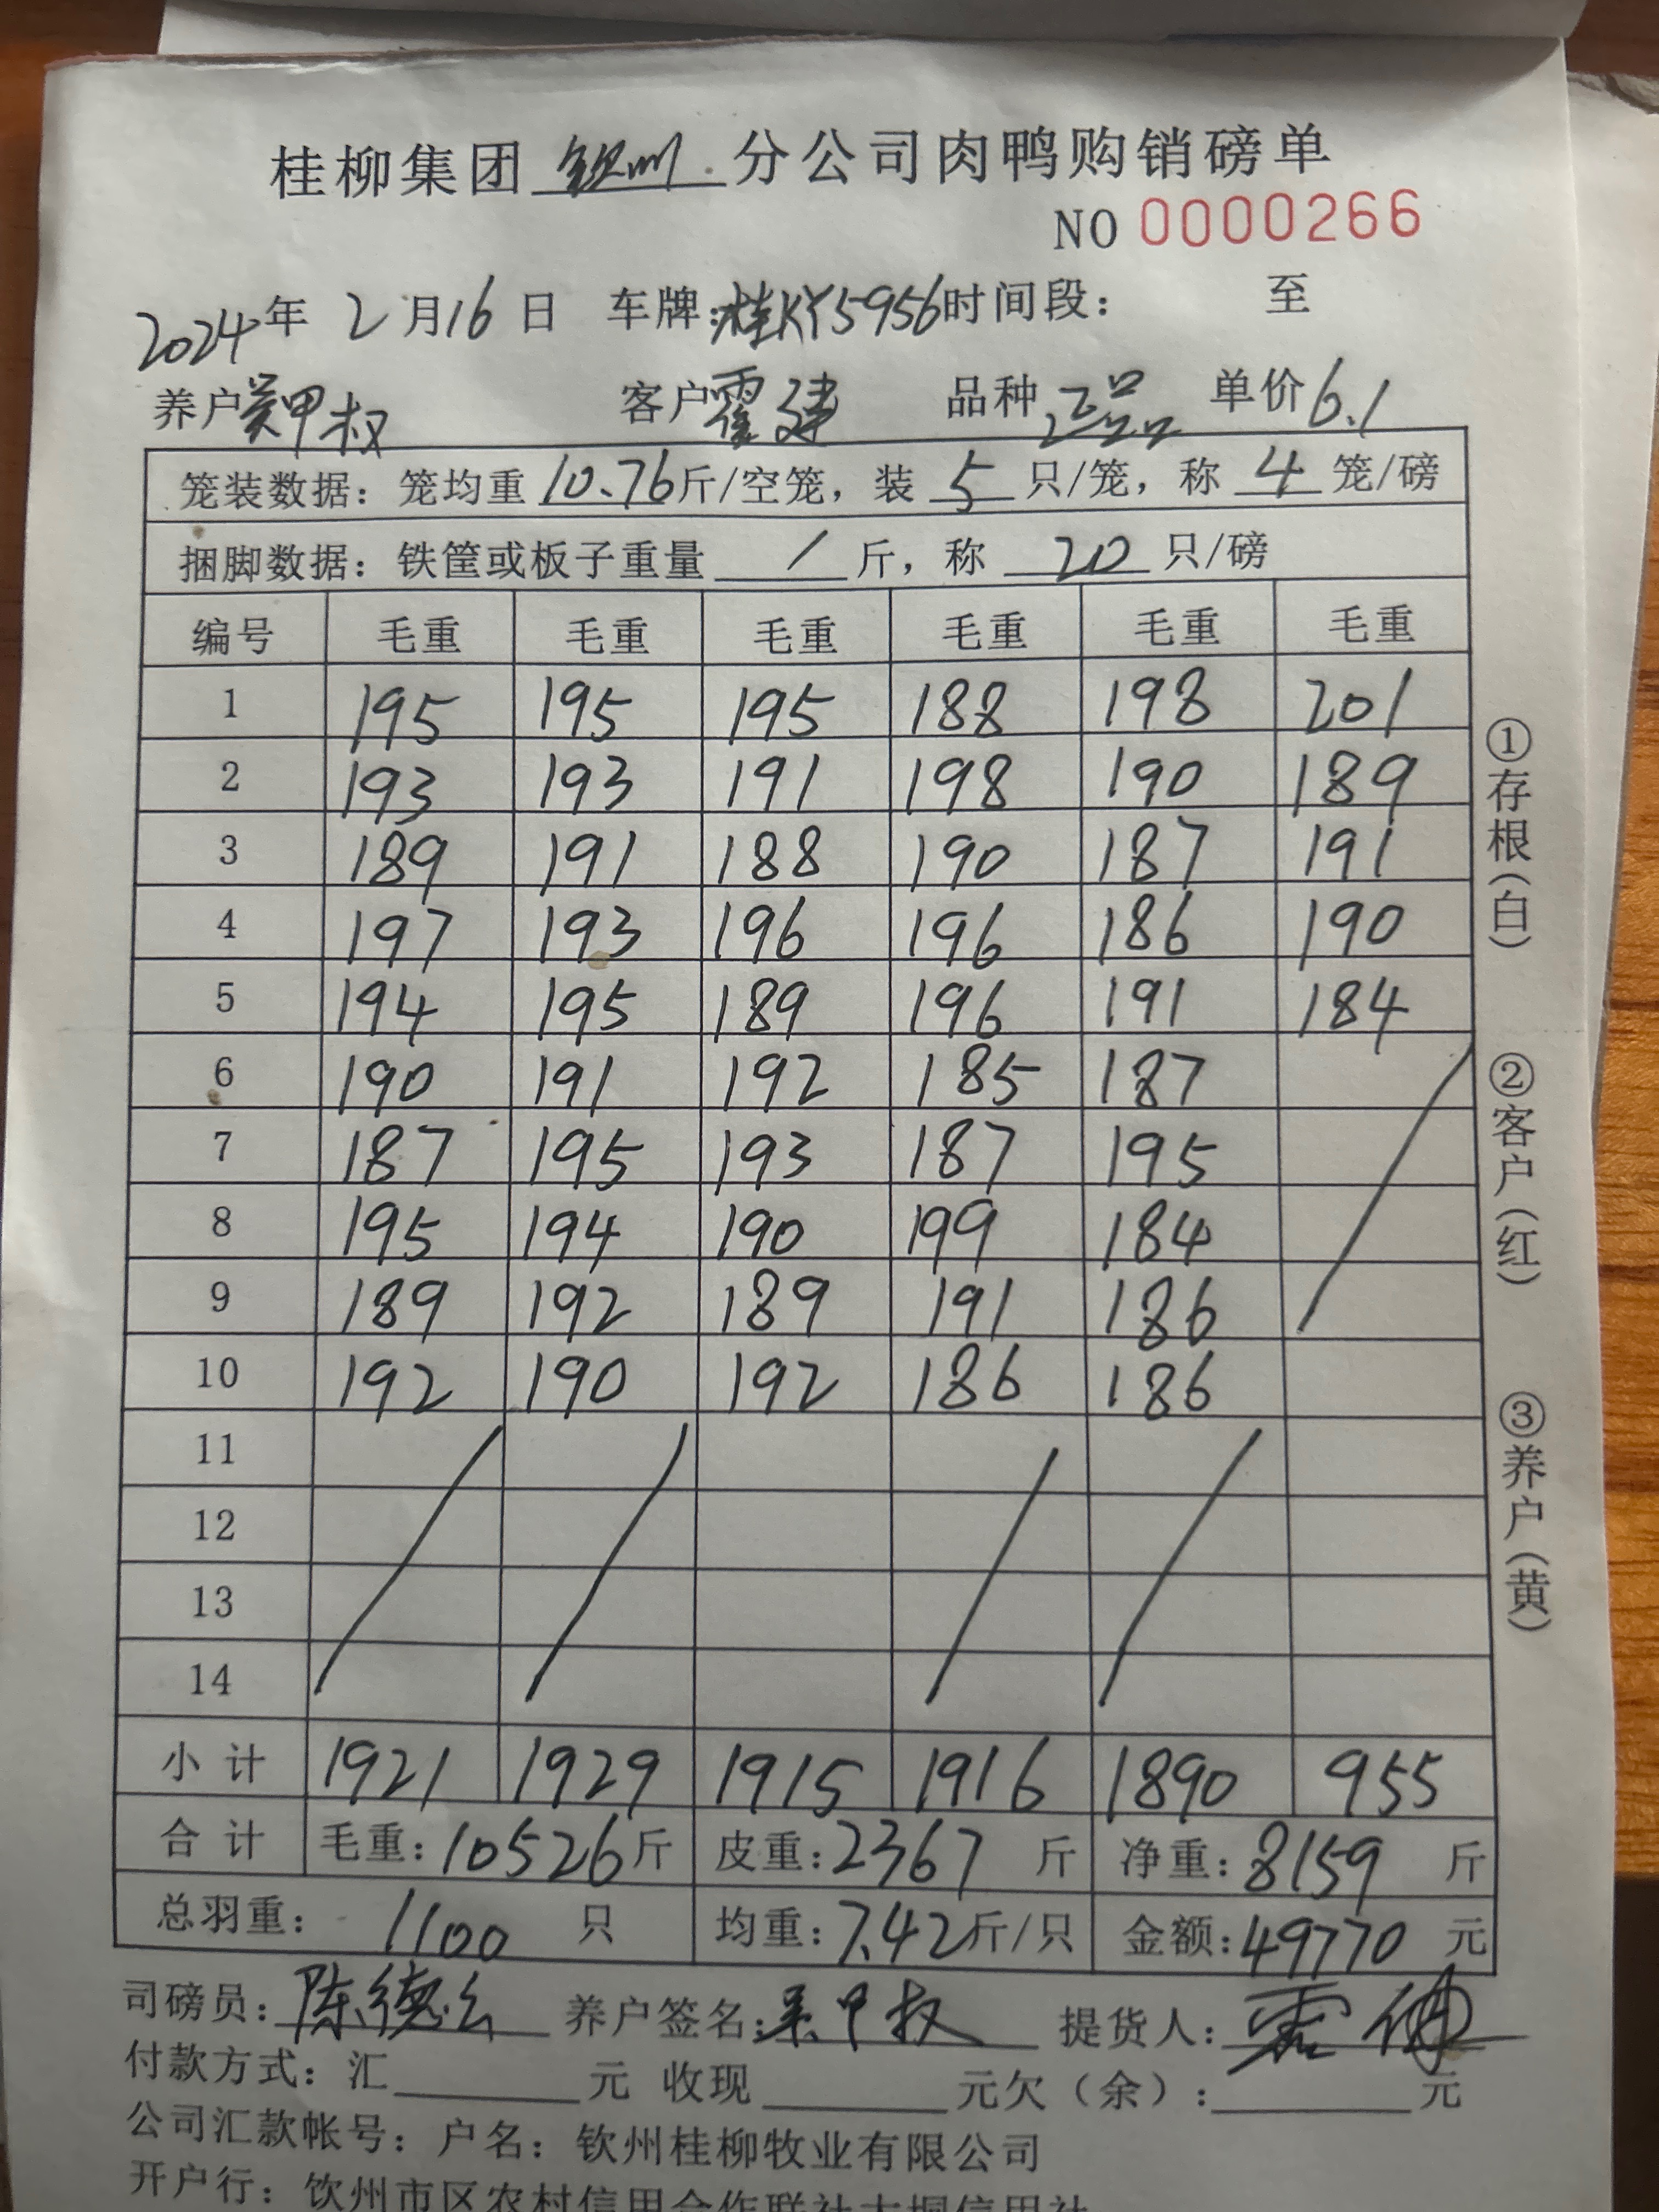 桂柳集团 钦州 分公司肉鸭购销磅单
NO 0000266
2024年 2月16日 车牌:桂KY5956 时间段: 至
养户 吴甲权 客户 霍建 品种 正品 单价 6.1
笼装数据: 笼均重 10.76 斤/空笼, 装 5 只/笼, 称 4 笼/磅
捆脚数据: 铁筐或板子重量 / 斤, 称 20 只/磅
编号 毛重 毛重 毛重 毛重 毛重 毛重
1 195 195 195 188 198 201
2 193 193 191 198 190 189
3 189 191 188 190 187 191
4 197 193 196 196 186 190
5 194 195 189 196 191 184
6 190 191 192 185 187
7 187 195 193 187 195
8 195 194 190 199 184
9 189 192 189 191 186
10 192 190 192 186 186
11
12
13
14
小计 1921 1929 1915 1916 1890 955
合计 毛重:10526斤 皮重:2367 斤 净重:8159 斤
总羽重: 1100 只 均重:7.42斤/只 金额:49770 元
司磅员: 陈德 养户签名:吴甲权 提货人: 霍
付款方式: 汇 元 收现 元欠(余): 元
公司汇款帐号: 户名: 钦州桂柳牧业有限公司
开户行: 钦州市区农村信用合作联社大垌信用社
①存根(白)
②客户(红)
③养户(黄)